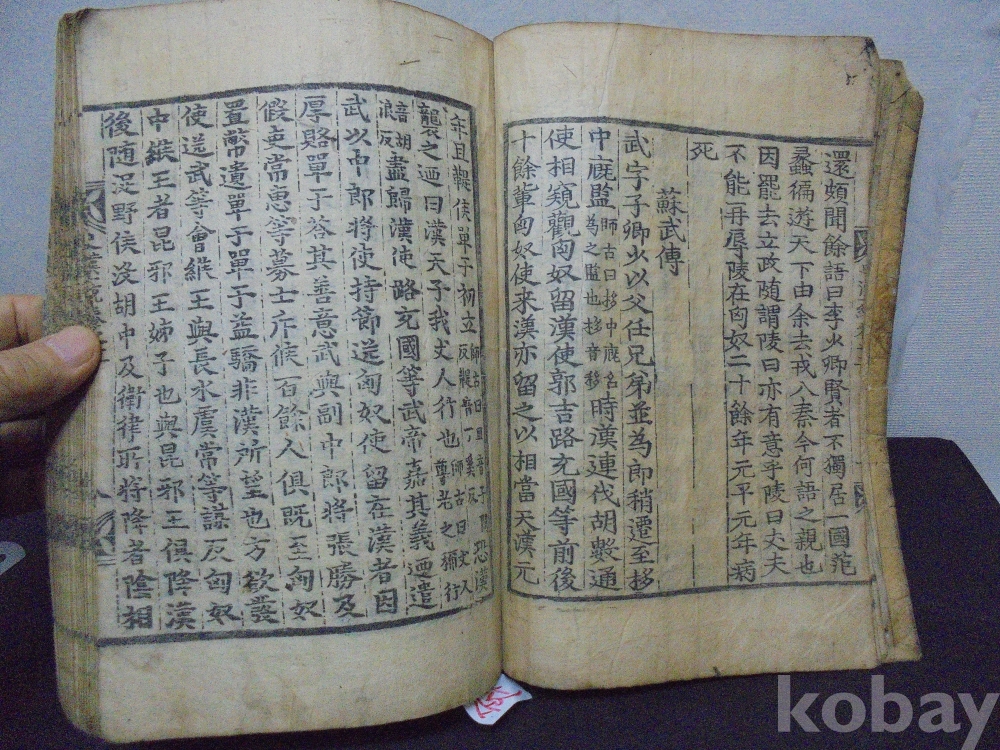 還頗聞餘語曰李少卿賢者不獨居一國范
蠡徧遊天下由余去戎入秦今何語之親也
因罷去立政隨謂陵曰亦有意乎陵曰丈夫
不能再辱陵在匈奴二十餘年元平元年病
死
蘇武傳
武字子卿少以父任兄弟並為郎稍遷至栘
中廐監師古曰栘中廐名為之監也栘音移時漢連伐胡數通
使相窺觀匈奴留漢使郭吉路充國等前後
十餘輩匈奴使来漢亦留之以相當天漢元
年且鞮侯單于初立恐漢
襲之迺曰漢天子我丈人行也師古曰丈人尊老之稱行
音胡浪反盡歸漢使路充國等武帝嘉其義迺遣
武以中郎將使持節送匈奴使留在漢者因
厚賂單于答其善意武與副中郎將張勝及
假吏常惠等募士斥候百餘人俱既至匈奴
置幣遺單于單于益驕非漢所望也方欲發
使送武等會緱王與長水虞常等謀反匈奴
中緱王者昆邪王姊子也與昆邪王俱降漢
後随浞野侯沒胡中及衛律所將降者陰相
kobay